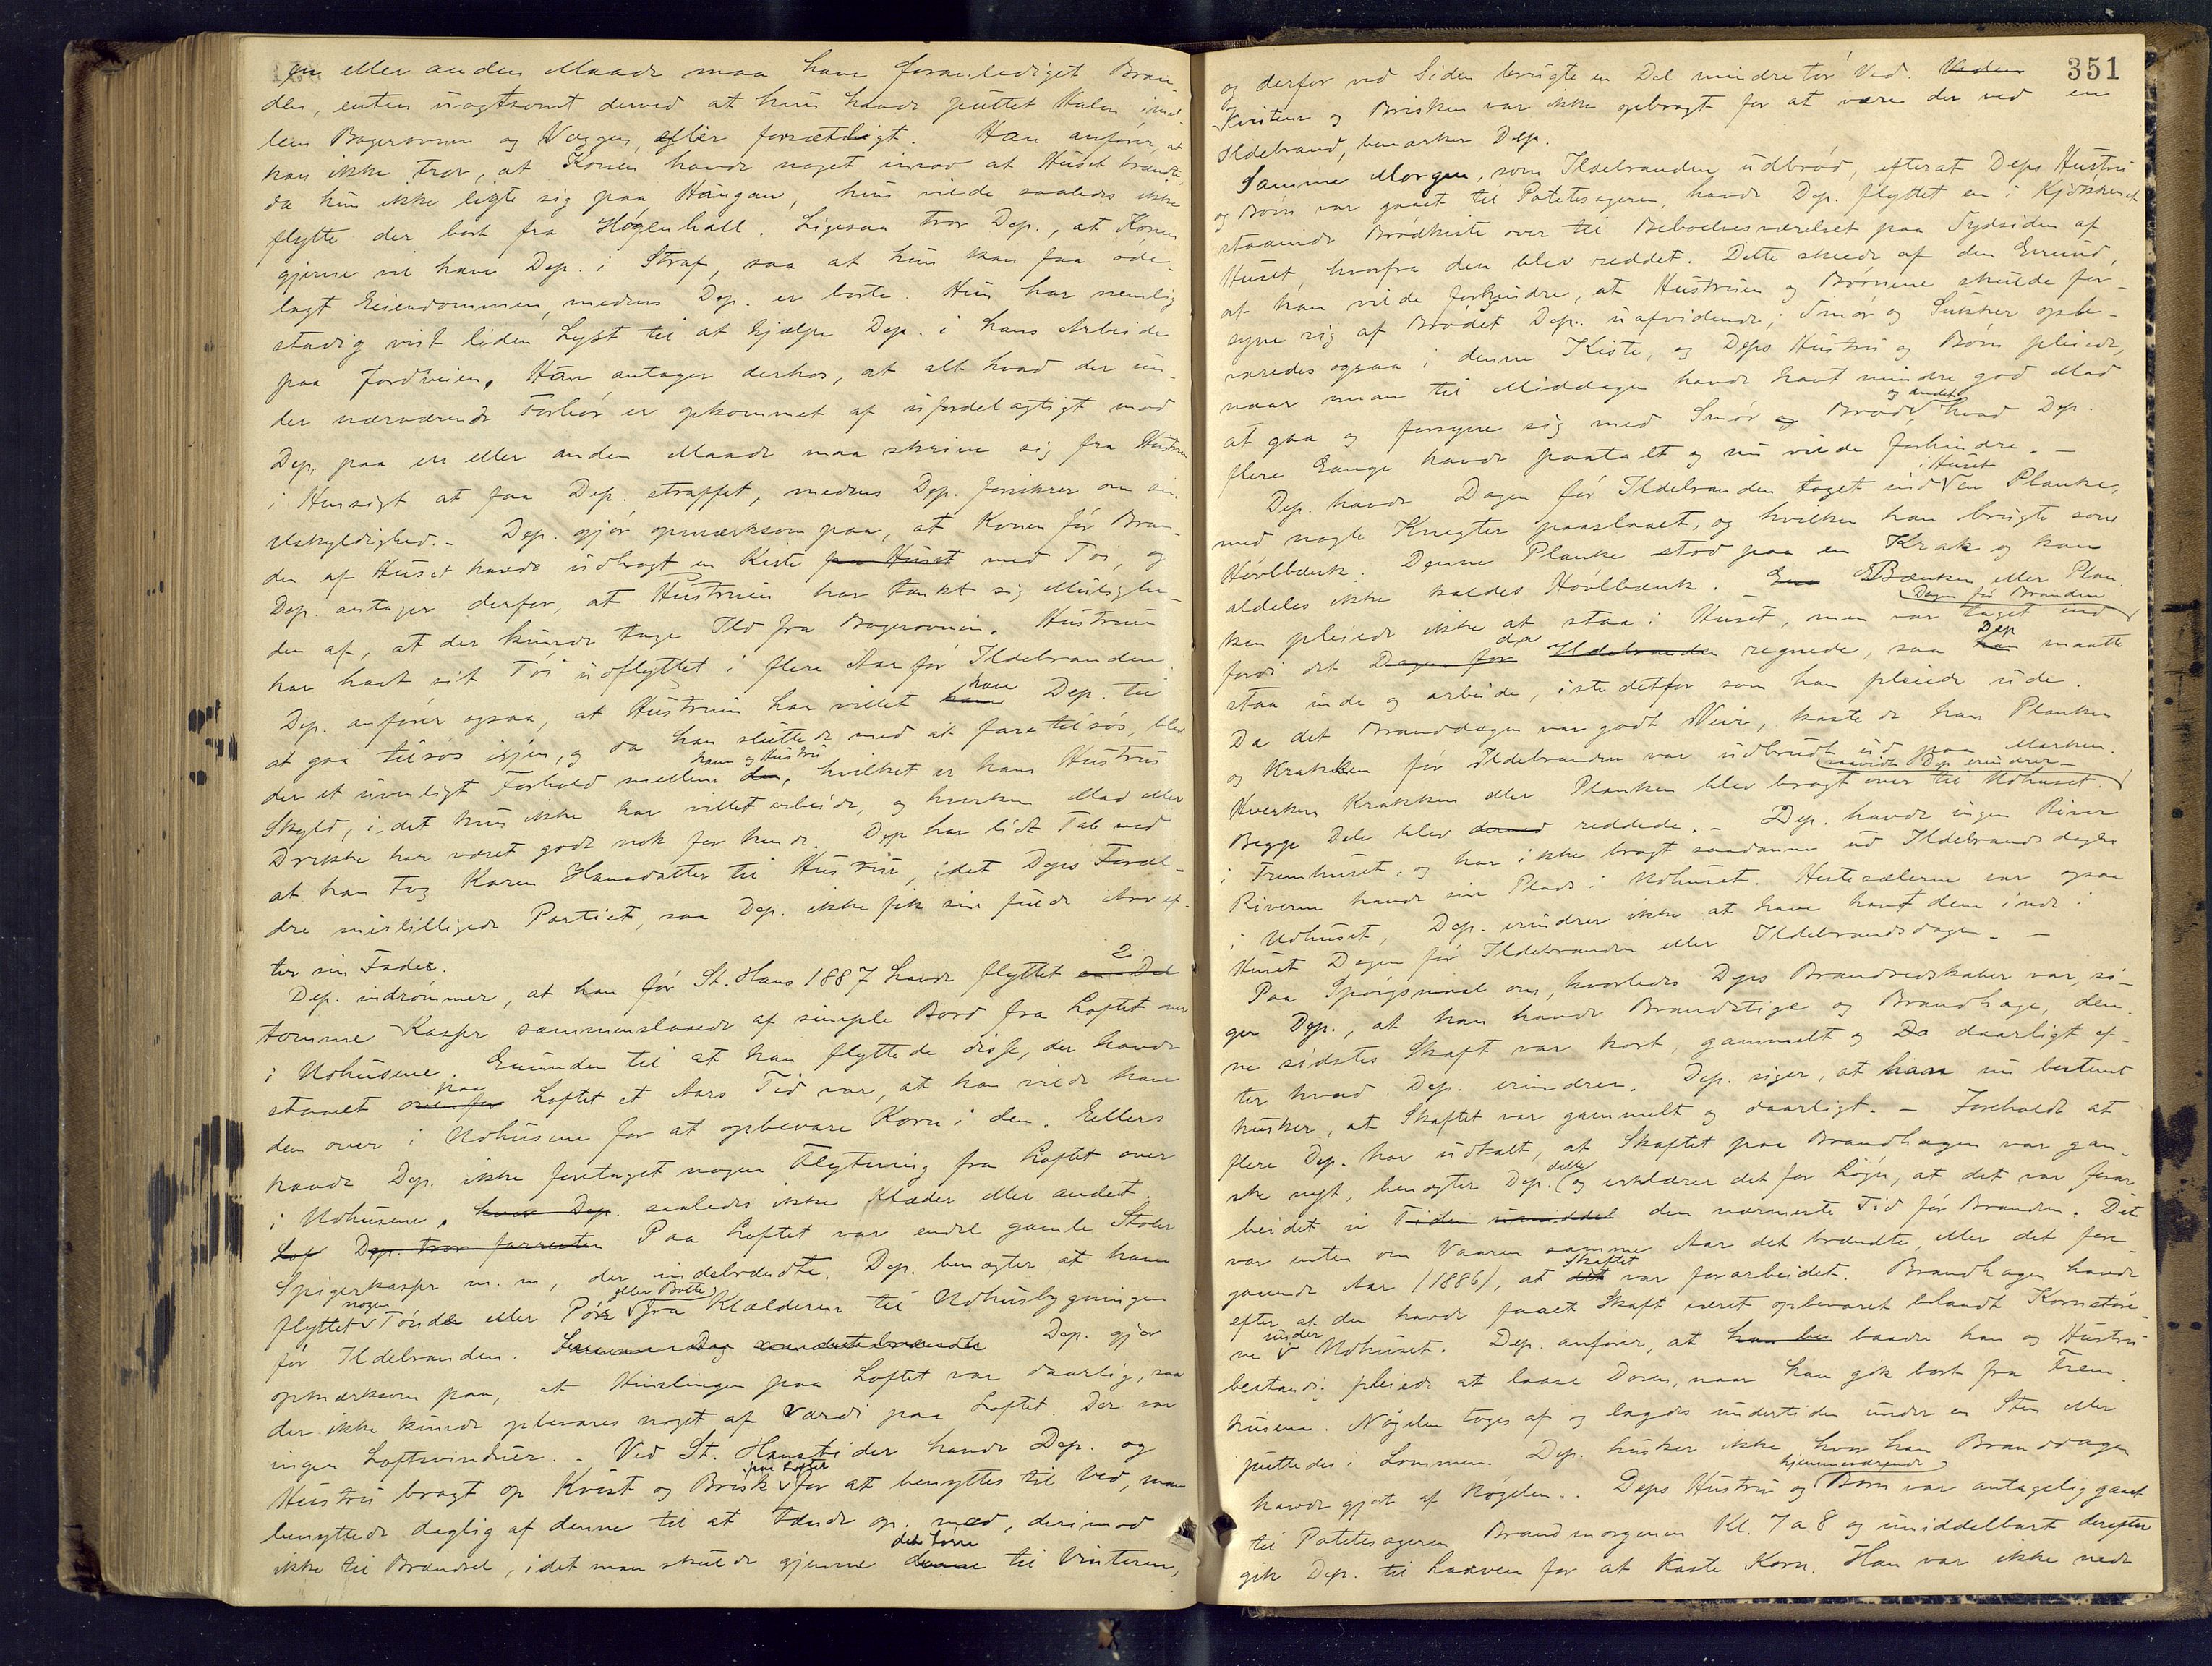 en eller anden Maade maa have foranlediget Bran-
den, enten uagtsomt derved at hun havde puttet Halm imel-
lem Bagerovnen og Væggen, eller forsætligt. Han anfører, at
han ikke tror, at Konen havde noget imod at Huset brændte,
da hun ikke ligte sig paa Haugan, hun vilde saaledes ikke
flytte der bort fra Høgenhall. Ligesaa tror Dep., at Konen
gjerne vil have Dep. i Straf, saa at hun kan faa øde-
lagt Eiendommen, medens Dep. er borte. Hun har nemlig
stadig vist liden Lyst til at hjælpe Dep. i hans Arbeide
paa Jordveien. Han antager derhos, at alt hvad der un-
der nærværende Forhør er opkommet af ufordelagtigt mod
Dep. paa en eller anden Maade maa skrive sig fra Hustruen
i Hensigt at faa Dep. straffet, medens Dep. forsikrer om sin
Uskyldighed. - Dep. gjør opmærksom paa, at Konen før Bran-
den af Huset havde udbragt en Kiste fra Huset med Tøi, og
Dep. antager derfor, at Hustruen har tænkt sig Mulighe-
den af, at der kunde tage Ild fra Bagerovnen. Hustruen
har havt sit Tøi udflyttet i flere Aar før Ildebranden.
Dep. anfører ogsaa, at Hustruen har villet have Dep. til
at gaa tilsøs igjen, og da han sluttede med at fare tilsøs, blev
der et uvenligt Forhold mellem ham og Hustru, hvilket er hans Hustrus
Skyld, idet hun ikke har villet arbeide, og hverken Mad eller
Drikke har været godt nok for hende. Dep. har lidt Tab ved
at han tog Karen Hansdatter til Hustru, idet Deps Foræl-
dre misbilligede Partiet, saa Dep. ikke fik sin fulde Arv ef-
ter sin Fader.
Dep. indrømmer, at han før St. Hans 1887 havde flyttet en Del 2
tomme Kasser sammenslaaede af simple Bord fra Loftet over
i Udhusene. Grunden til at han flyttede disse, der havde
staaet ovenfor paa Loftet et Aars Tid var, at han vilde have
dem over i Udhusene for at opbevare Korn i dem. Ellers
havde Dep. ikke foretaget nogen Flytning fra Loftet over
i Udhusene, hvor Dep. saaledes ikke Klæder eller andet.
Lof Dep. tror forresten Paa Loftet var endel gamle Stoler
Spigerkasser m. m., der indebrændte. Dep. benægter at have
flyttet nogen Tønde eller Pøs eller Bøtte fra Kjælderen til Udhusbygningen
før Ildebranden. Dep. gjør
opmærksom paa, at Hvælingen paa Loftet var daarlig, saa
der ikke kunde opbevares noget af Værdi paa Loftet. Der var
ingen Loftsvinduer. - Ved St. Hanstider havde Dep. og
Hustru bragt op Kvist og Brisk paa Loftet for at benyttes til Ved, man
benyttede daglig af denne til at tænde op med, derimod
ikke til Brændsel, idet man skulde gjemme denne det Tørre til Vinteren,
351
og derfor ved Siden brugte en Del mindre tør Ved. Veden
Kvisten og Brisken var ikke opbragt for at være der ved en
Ildebrand, bemærker Dep.
Samme Morgen, som Ildebranden udbrød, efterat Deps Hustru
og Børn var gaaet til Potetesageren, havde Dep. flyttet en i Kjøkkenet
staaende Brødkiste over til Beboelsesværelset paa Sydsiden af
Huset, hvorfra den blev reddet. Dette skede af den Grund,
at han vilde forhindre, at Hustruen og Børnene skulde for-
syne sig af Brødet Dep. uafvidende; Smør og Sukker opbe-
varedes ogsaa i denne Kiste, og Deps Hustru og Børn pleiede,
naar man til Middagen havde havt mindre god Mad
at gaa og forsyne sig med Smør og Brød og andet hvad Dep.
flere Gange havde paatalt og nu vilde forhindre. -
Dep. havde Dagen før Ildebranden taget ind i Huset en Planke,
med nogle Knegter paaslaaet, og hvilken han brugte som
Høvlbænk. Denne Planke stod paa en Krak og kan
aldeles ikke kaldes Høvlbænk. Bænken eller Plan-
ken pleiede ikke at staa i Huset, men var Dagen før Branden taget ind
fordi det Dagen før da Ildebranden regnede, saa han Dep maatte
staa inde og arbeide, istedetfor som han pleiede ude.
Da det Branddagen var godt Veir, kastede han Planken
og Krakken før Ildebranden var udbrudt ud paa Marken.
Hverken Krakken eller Planken blev saavidt Dep erindrer - bragt over til Udhuset.
Begge Dele blev derved reddede. - Dep. havde ingen River
i Fremhuset, og har ikke bragt saadanne ud Ildebrandsdagen
Riverne havde sin Plads i Udhuset. Hestesælerne var ogsaa
i Udhuset, Dep. erindrer ikke at have havt dem inde i
Huset Dagen før Ildebranden eller Ildebrandsdagen. -
Paa Spørgsmaal om, hvorledes Deps Brandredskaber var, si-
ger Dep., at han havde Brandstige og Brandhage, den-
ne sidstes Skaft var kort, gammelt og daarligt ef-
ter hvad Dep. erindrer. Dep. siger, at han nu bestemt
husker, at Skaftet var gammelt og daarligt. - Foreholdt at
flere Dep. har udtalt, at Skaftet paa Brandhagen var gan-
ske nyt, benægter Dep. dette og erklærer det for Løgn, at det var forar
beidet i Tiden umiddel den nærmeste Tid før Branden. Det
var enten om Vaaren samme Aar det brændte, eller det fore-
gaaende Aar (1886), at det Skaftet var forarbeidet. Brandhagen havde
efter at den havde faaet Skaft været opbevaret blandt Kornstøre-
ne under Udhuset. Dep. anfører, at baade han og Hustru
bestandig pleiede at laase Døren, naar han gik bort fra Frem-
husene. Nøgelen toges af og lagdes undertiden under en Sten eller
puttedes i Lommen. Dep. husker ikke, hvor han Branddagen
havde gjort af Nøgelen. Deps Hustru og hjemmeværende Børn var antagelig gaaet
til Potetesageren Brandmorgenen Kl. 7 a 8 og umiddelbart derefter
gik Dep. til Laaven for at kaste Korn. Han var ikke nede